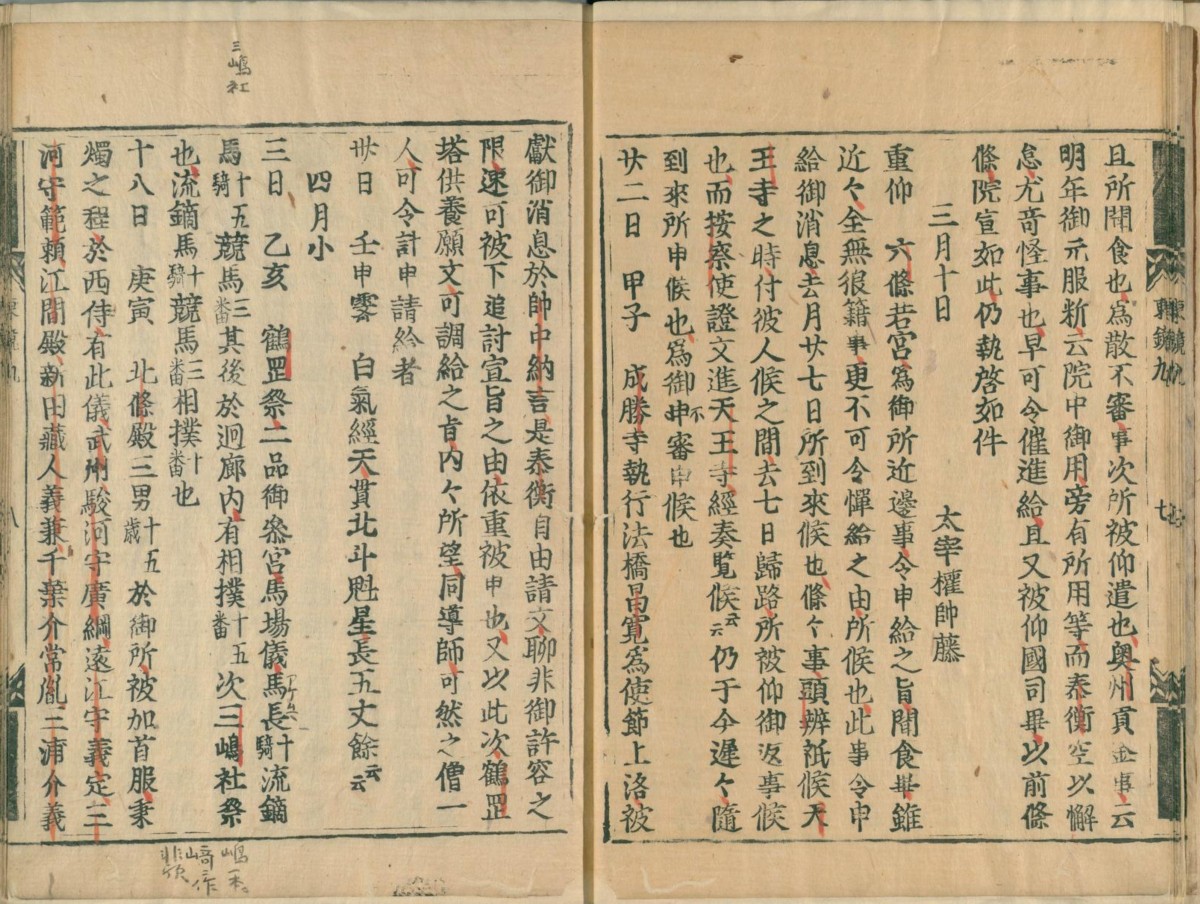 且所聞食也爲散不審事次所被仰遣也奥州貢金事云
明年御元服断云院中御用旁有所用等而泰衡空以懈
怠尤奇怪事也早可令催進給且又被仰國司畢以前條
條院宣如此仍執啓如件
三月十日
太宰權帥藤
重仰 六條若宮爲御所近邊事令申給之旨聞食畢雖
近々全無狼籍事更不可令憚給之由所候也此事令申
給御消息去月廿七日所到來候也條々事頭辨祇候天
王寺之時付彼人候之間去七日歸路所被仰御返事候
也而按察使證文進天王寺經奏覧候云云仍于今遅々隨
到來所申候也爲御不申審申候也
廿二日 甲子 成勝寺執行法橋昌寛爲使節上洛被
東鏡九
七
獻御消息於帥中納言是泰衡自由請文聊非御許容之
限速可被下追討宣旨之由依重被申也又以此次鶴罡
塔供養願文可調給之旨内々所望同導師可然之僧一
人可令計申請給者
廿日 壬申霽 白氣經天貫北斗魁星長五丈餘云云
四月小
三日 乙亥 鶴罡祭二品御參宮馬場儀馬長十騎流鏑
馬十五騎競馬三番其後於迴廊内有相撲十五番次三嶋社祭
也流鏑馬十騎競馬三番相撲十番也
十八日 庚寅 北條殿三男十五歳於御所被加首服秉
燭之程於西侍有此儀武州駿河守廣綱遠江守義定三
河守範頼江間殿新田藏人義兼千葉介常胤三浦介義
八
三嶋社
嶋一本